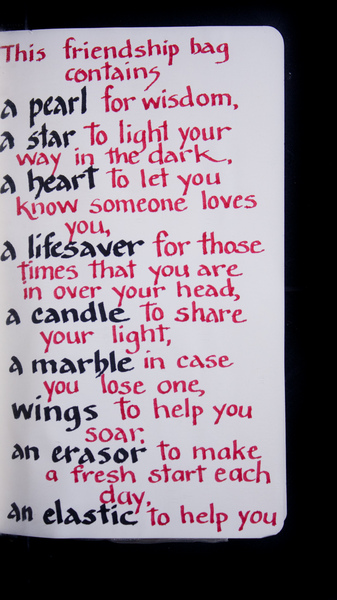 This friendship bag
contains
a pearl for wisdom,
a star to light your
way in the dark,
a heart to let you
know someone loves
you,
a lifesaver for those
times that you are
in over your head,
a candle to share
your light,
a marble in case
you lose one,
wings to help you
soar,
an erasor to make
a fresh start each
day,
an elastic to help you